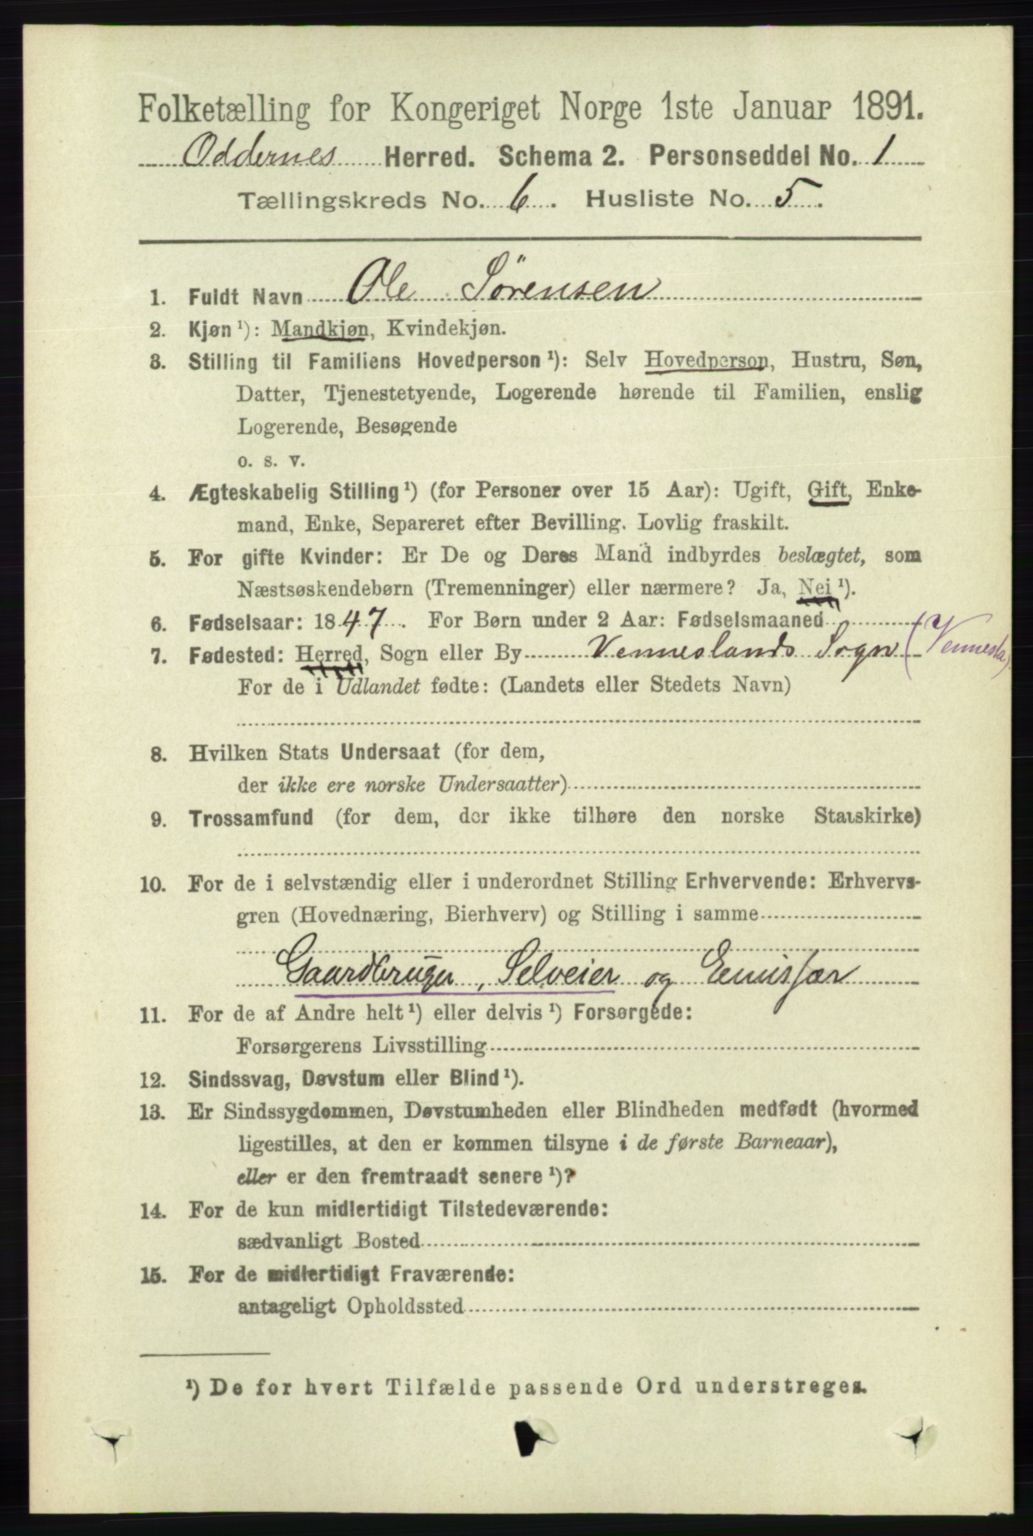 Folketælling for Kongeriget Norge 1ste Januar 1891.
Oddernes Herred. Schema 2. Personseddel No. 1
Tællingskreds No. 6. Husliste No. 5.
1. Fuldt Navn Ole Sørensen
2. Kjøn ¹): Mandkjøn, Kvindekjøn.
3. Stilling til Familiens Hovedperson ¹): Selv Hovedperson, Hustru, Søn,
Datter, Tjenestetyende, Logerende hørende til Familien, enslig
Logerende, Besøgende
o. s. v.
4. Ægteskabelig Stilling ¹) (for Personer over 15 Aar): Ugift, Gift, Enke-
mand, Enke, Separeret efter Bevilling. Lovlig fraskilt.
5. For gifte Kvinder: Er De og Deres Mand indbyrdes beslægtet, som
Næstsøskendebørn (Tremenninger) eller nærmere? Ja, Nei ¹).
6. Fødselsaar: 1847. For Børn under 2 Aar: Fødselsmaaned
7. Fødested: Herred, Sogn eller By Venneslands Sogn (Vennesla)
For de i Udlandet fødte: (Landets eller Stedets Navn)
8. Hvilken Stats Undersaat (for dem,
der ikke ere norske Undersaatter)
9. Trossamfund (for dem, der ikke tilhøre den norske Statskirke)
10. For de i selvstændig eller i underordnet Stilling Erhvervende: Erhvervs-
gren (Hovednæring, Bierhverv) og Stilling i samme
Gaardbruger, Selveier og
11. For de af Andre helt ¹) eller delvis ¹) Forsørgede:
Forsørgerens Livsstilling
12. Sindssvag, Døvstum eller Blind ¹).
13. Er Sindssygdommen, Døvstumheden eller Blindheden medfødt (hvormed
ligestilles, at den er kommen tilsyne i de første Barneaar),
eller er den fremtraadt senere ¹)?
14. For de kun midlertidigt Tilstedeværende:
sædvanligt Bosted
15. For de midlertidigt Fraværende:
antageligt Opholdssted
¹) De for hvert Tilfælde passende Ord understreges.